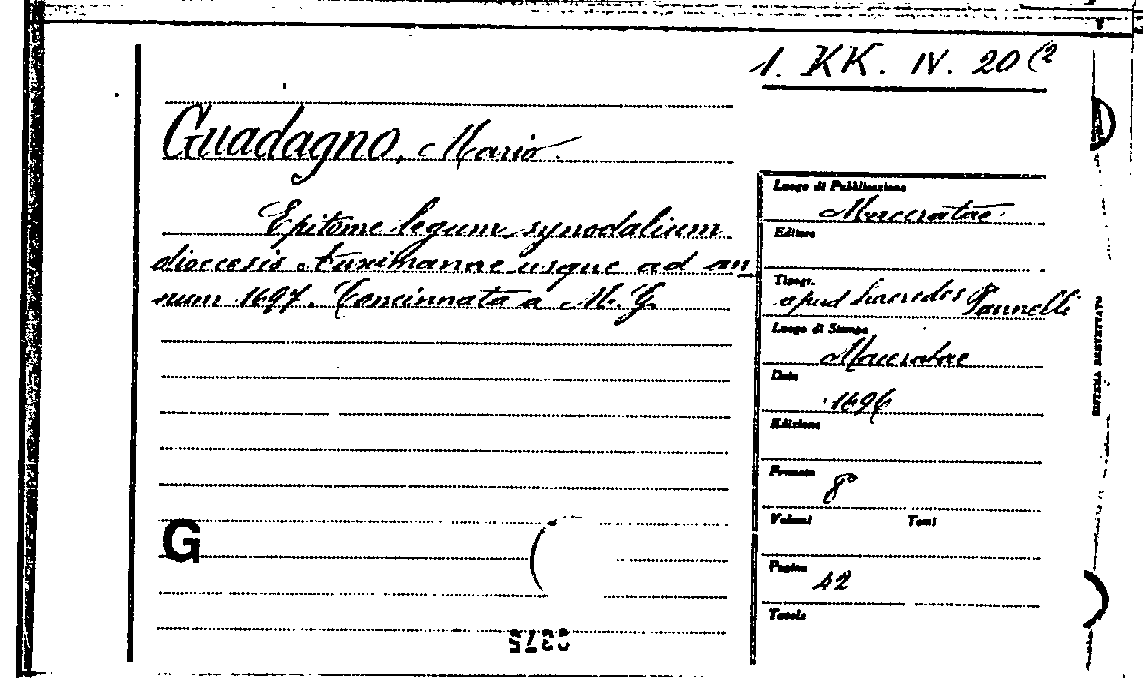 1. KK. IV. 20 (2
Guadagno, Mario.
Epitome legum synodalium
dioecesis Auximanae usque ad an
num 1697. Concinnata a M. G.
Luogo di Pubblicazione
Maceratae.
Editore
Tipogr.
apud haeredes Pannelli
Luogo di Stampa
Maceratae
Data
1696
Edizione
Formato
8°
Volumi Tomi
Pagine
42
Tavole
G
0375
SISTEMA BREVETTATO